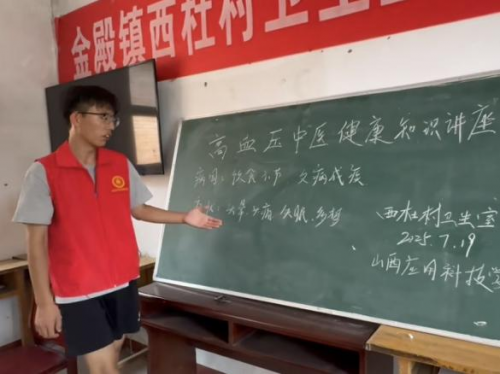 金殿镇西杜村卫生
高血压中医健康知识讲座
病因：饮食不节 久病成疾
西杜村卫生室
2025.7.19
山西应用科技学